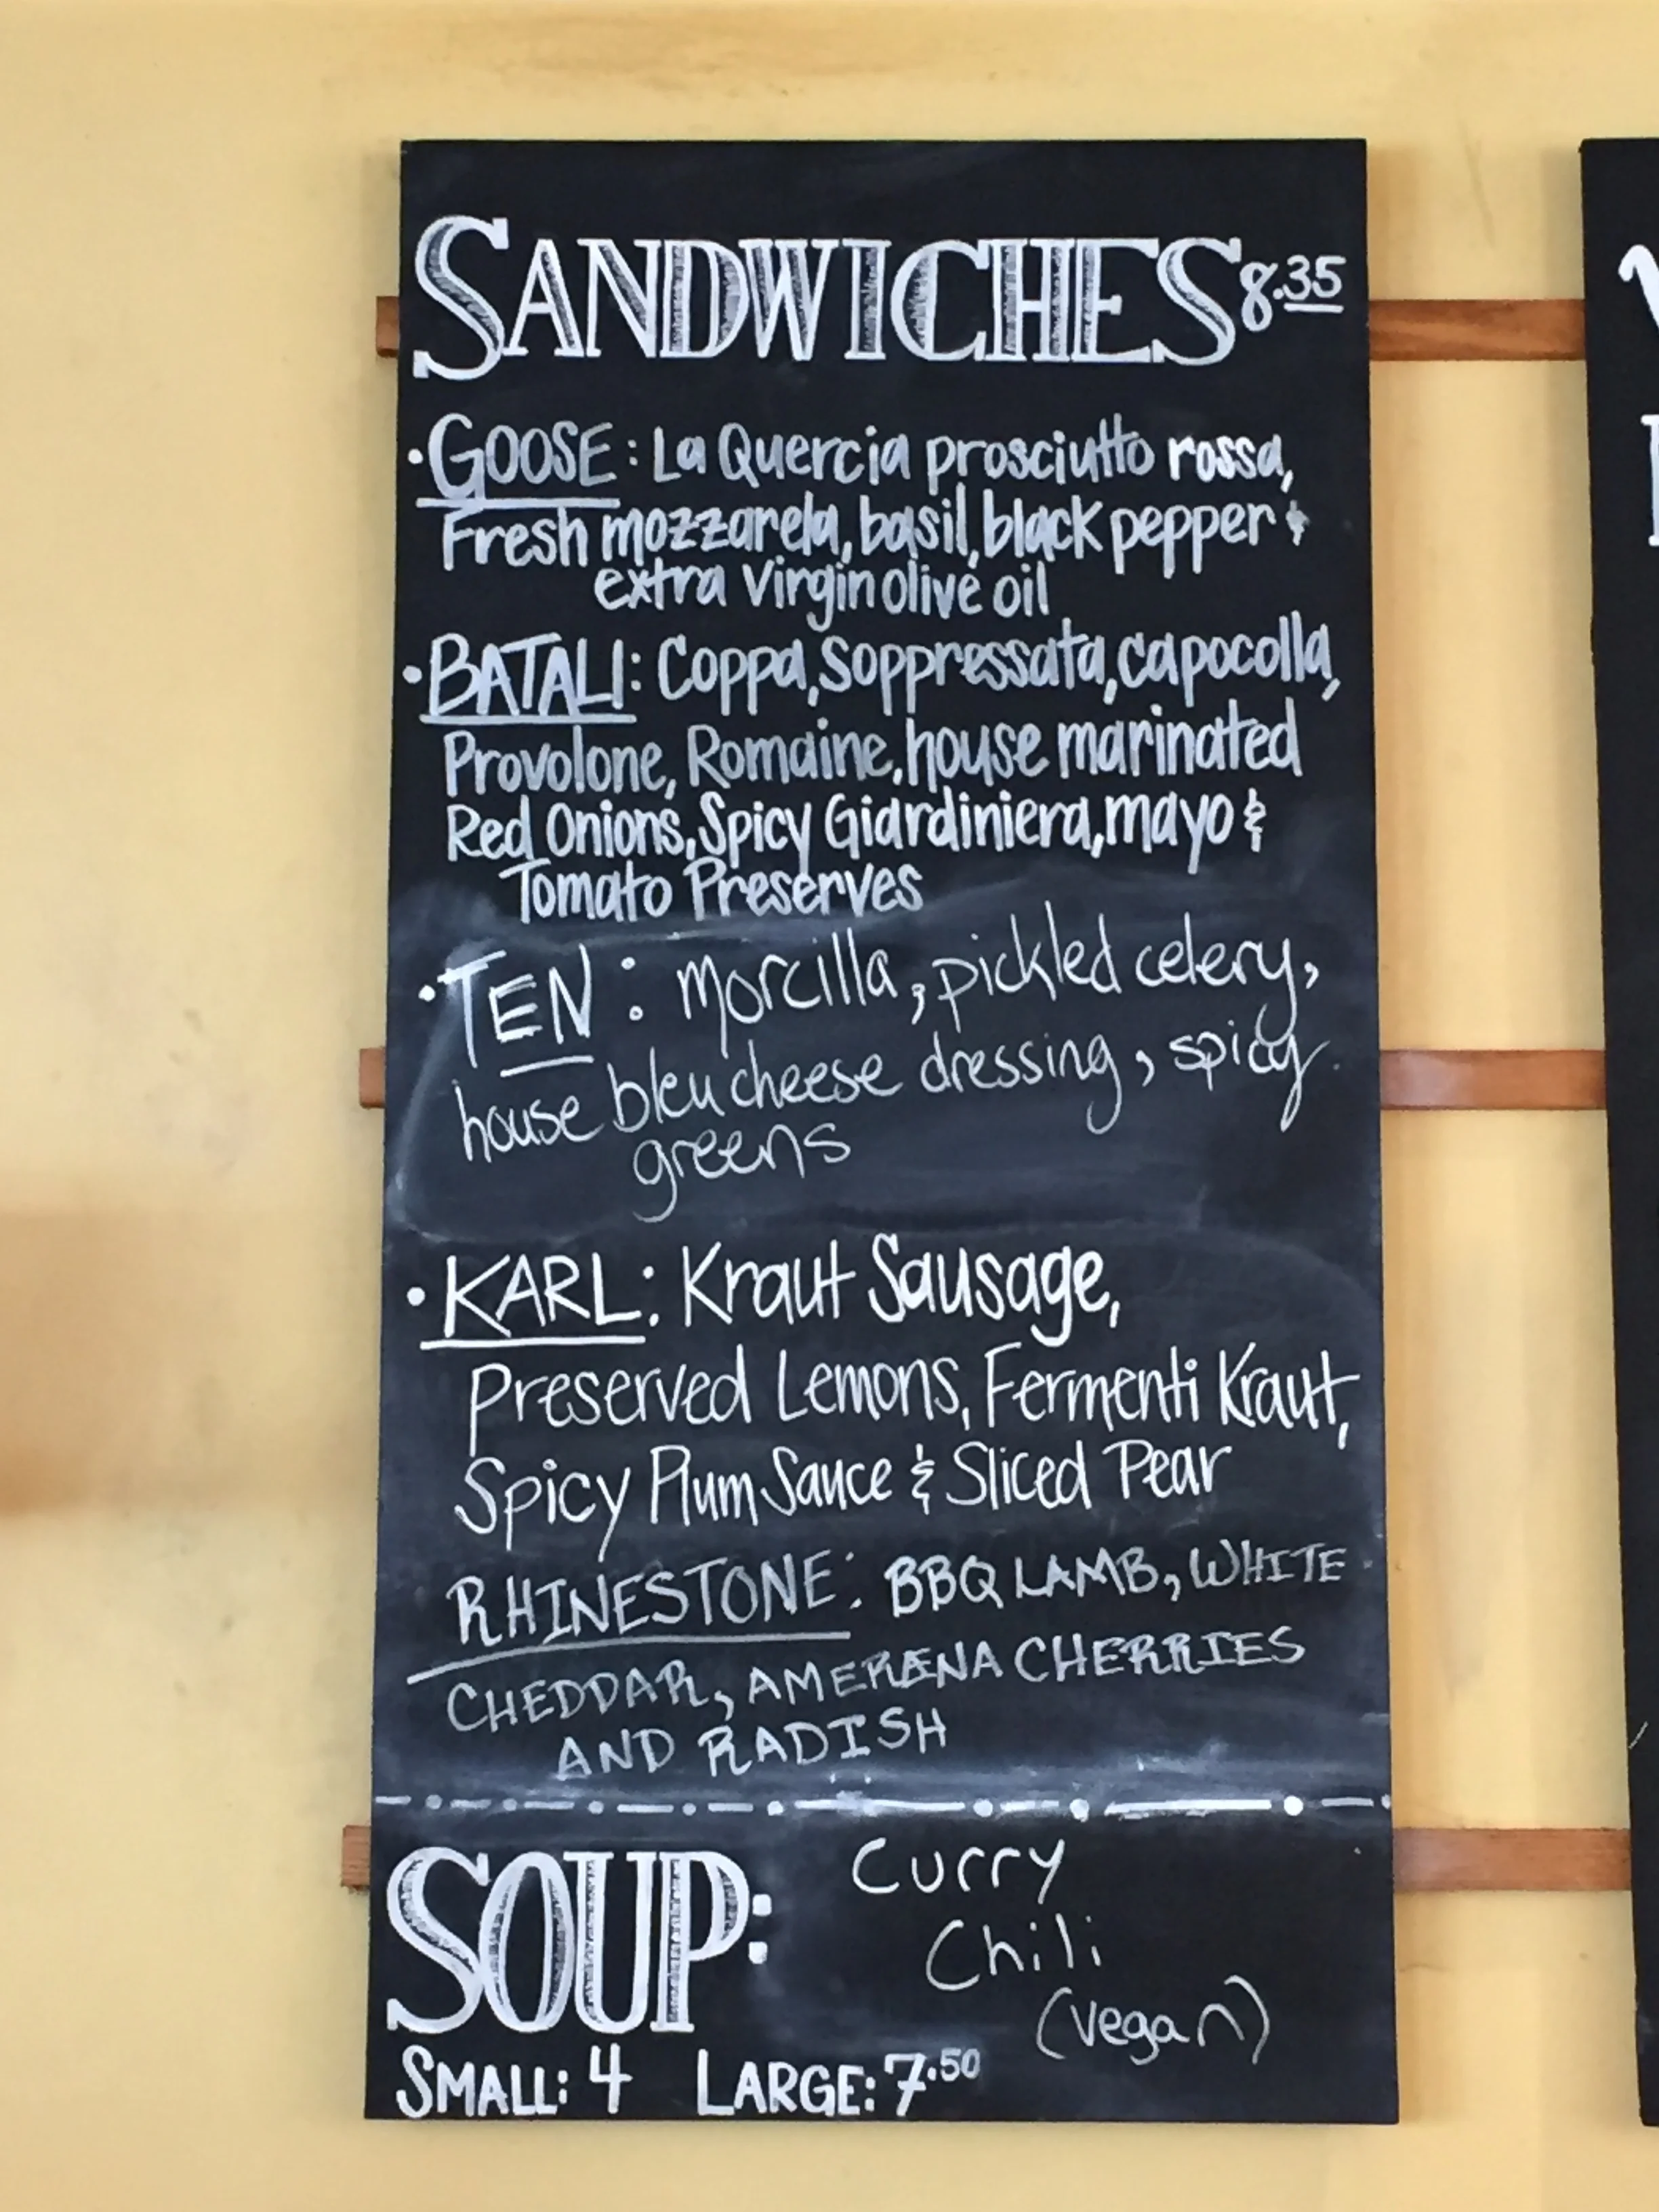 SANDWICHES 8.35
·GOOSE: La Quercia prosciutto rossa,
Fresh mozzarela, basil, black pepper &
extra Virgin olive oil
·BATALI: Coppa, Soppressata, capocolla,
Provolone, Romaine, house marinated
Red Onions, Spicy Giardiniera, mayo &
Tomato Preserves
·TEN: morcilla, pickled celery,
house bleu cheese dressing, spicy
greens
·KARL: Kraut Sausage,
Preserved Lemons, Fermenti Kraut,
Spicy Plum Sauce & Sliced Pear
RHINESTONE: BBQ LAMB, WHITE
CHEDDAR, AMERENA CHERRIES
AND RADISH
SOUP: Curry
Chili
(vegan)
SMALL: 4 LARGE: 7.50